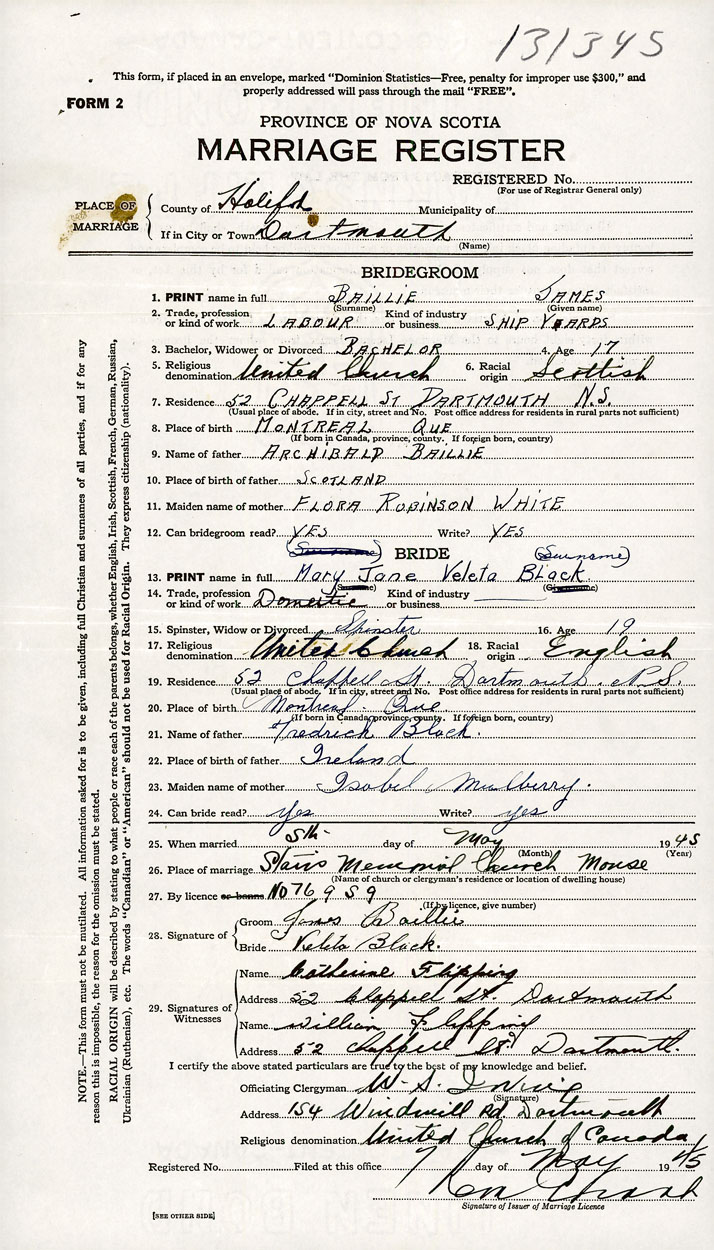 131345
This form, if placed in an envelope, marked "Dominion Statistics—Free, penalty for improper use $300," and
properly addressed will pass through the mail "FREE".
FORM 2
PROVINCE OF NOVA SCOTIA
MARRIAGE REGISTER
REGISTERED No.
(For use of Registrar General only)
PLACE OF MARRIAGE
County of Halifax Municipality of
If in City or Town Dartmouth
(Name)
BRIDEGROOM
1. PRINT name in full BAILLIE JAMES
(Surname) (Given name)
2. Trade, profession or kind of work LABOUR Kind of industry or business SHIP YEARDS
3. Bachelor, Widower or Divorced BACHELOR 4. Age 17
5. Religious denomination United Church 6. Racial origin Scottish
7. Residence 52 CHAPPELL ST DARTMOUTH N.S.
(Usual place of abode. If in city, street and No. Post office address for residents in rural parts not sufficient)
8. Place of birth MONTREAL QUE
(If born in Canada, province, county. If foreign born, country)
9. Name of father ARCHIBALD BAILLIE
10. Place of birth of father SCOTLAND
11. Maiden name of mother FLORA ROBINSON WHITE
12. Can bridegroom read? YES Write? YES
(Surname) BRIDE (Surname)
13. PRINT name in full Mary Jane Veleta Black.
14. Trade, profession or kind of work Domestic Kind of industry or business
15. Spinster, Widow or Divorced Spinster 16. Age 19
17. Religious denomination United Church 18. Racial origin English
19. Residence 52 Chappell St. Dartmouth. N.S.
(Usual place of abode. If in city, street and No. Post office address for residents in rural parts not sufficient)
20. Place of birth Montreal. Que
(If born in Canada, province, county. If foreign born, country)
21. Name of father Fredrick Black.
22. Place of birth of father Ireland
23. Maiden name of mother Isobel Mulberry.
24. Can bride read? Yes Write? yes
25. When married 5th day of May 1945
(Month) (Year)
26. Place of marriage Stairs Memorial Church Manse
(Name of church or clergyman's residence or location of dwelling house)
27. By licence or banns No 76959
(If by licence, give number)
28. Signature of
Groom James Baillie
Bride Veleta Black.
29. Signatures of Witnesses
Name Catherine Flipping
Address 52 Chappell St. Dartmouth
Name William Flipping
Address 52 Chappell St. Dartmouth.
I certify the above stated particulars are true to the best of my knowledge and belief.
Officiating Clergyman W. S. Irving
(Signature)
Address 154 Windmill Rd Dartmouth
Religious denomination United Church of Canada
Registered No. Filed at this office 7 day of May 1945
Signature of Issuer of Marriage Licence
[SEE OTHER SIDE]
NOTE.—This form must not be mutilated. All information asked for is to be given, including full Christian and surnames of all parties, and if for any
reason this is impossible, the reason for the omission must be stated.
RACIAL ORIGIN will be described by stating to what people or race each of the parents belongs, whether English, Irish, Scottish, French, German, Russian,
Ukrainian (Ruthenian), etc. The words "Canadian" or "American" should not be used for Racial Origin. They express citizenship (nationality).